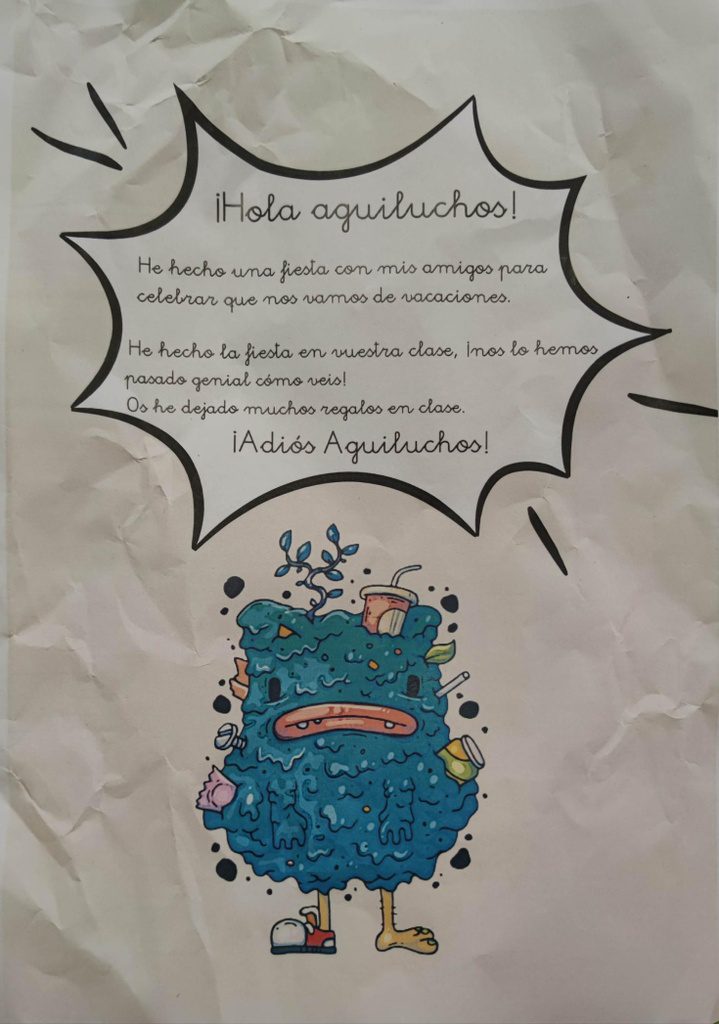 ¡Hola aguiluchos!
He hecho una fiesta con mis amigos para
celebrar que nos vamos de vacaciones.
He hecho la fiesta en vuestra clase, ¡nos lo hemos
pasado genial cómo veis!
Os he dejado muchos regalos en clase.
¡Adiós Aguiluchos!